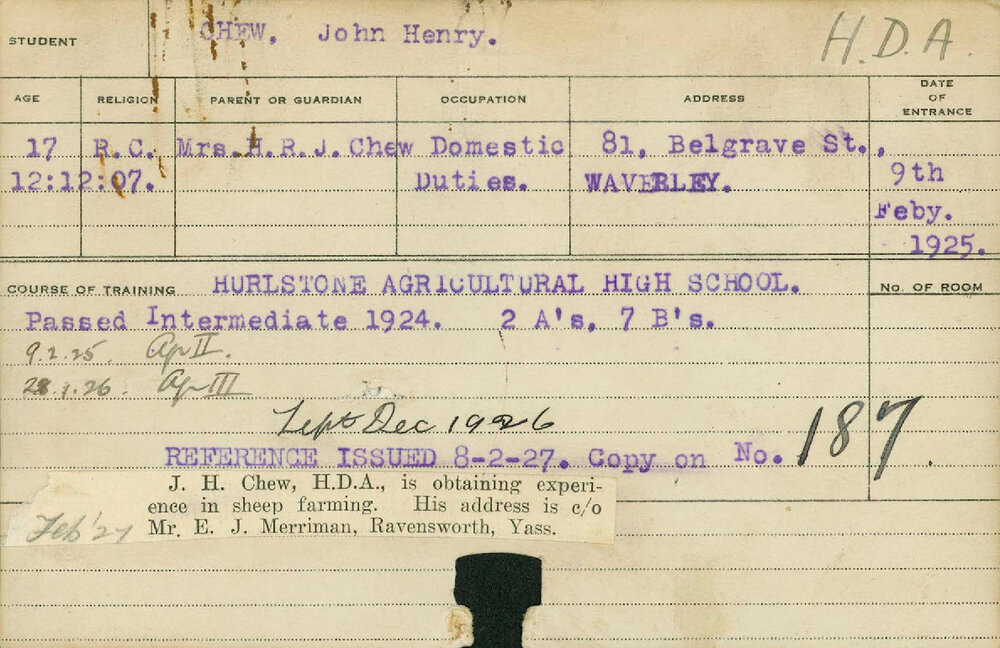 STUDENT CHEW, John Henry. H.D.A.
AGE RELIGION PARENT OR GUARDIAN OCCUPATION ADDRESS DATE OF ENTRANCE
17 R.C. Mrs.H.R.J.Chew Domestic 81, Belgrave St.,
12:12:07. Duties. WAVERLEY. 9th
Feby.
1925.
COURSE OF TRAINING HURLSTONE AGRICULTURAL HIGH SCHOOL. No. OF ROOM
Passed Intermediate 1924. 2 A's, 7 B's.
9.2.25. Ag II.
28.1.26. Ag III
Left Dec 1926
REFERENCE ISSUED 8-2-27. Copy on No. 187.
J. H. Chew, H.D.A., is obtaining experi-
ence in sheep farming. His address is c/o
Feb '27 Mr. E. J. Merriman, Ravensworth, Yass.